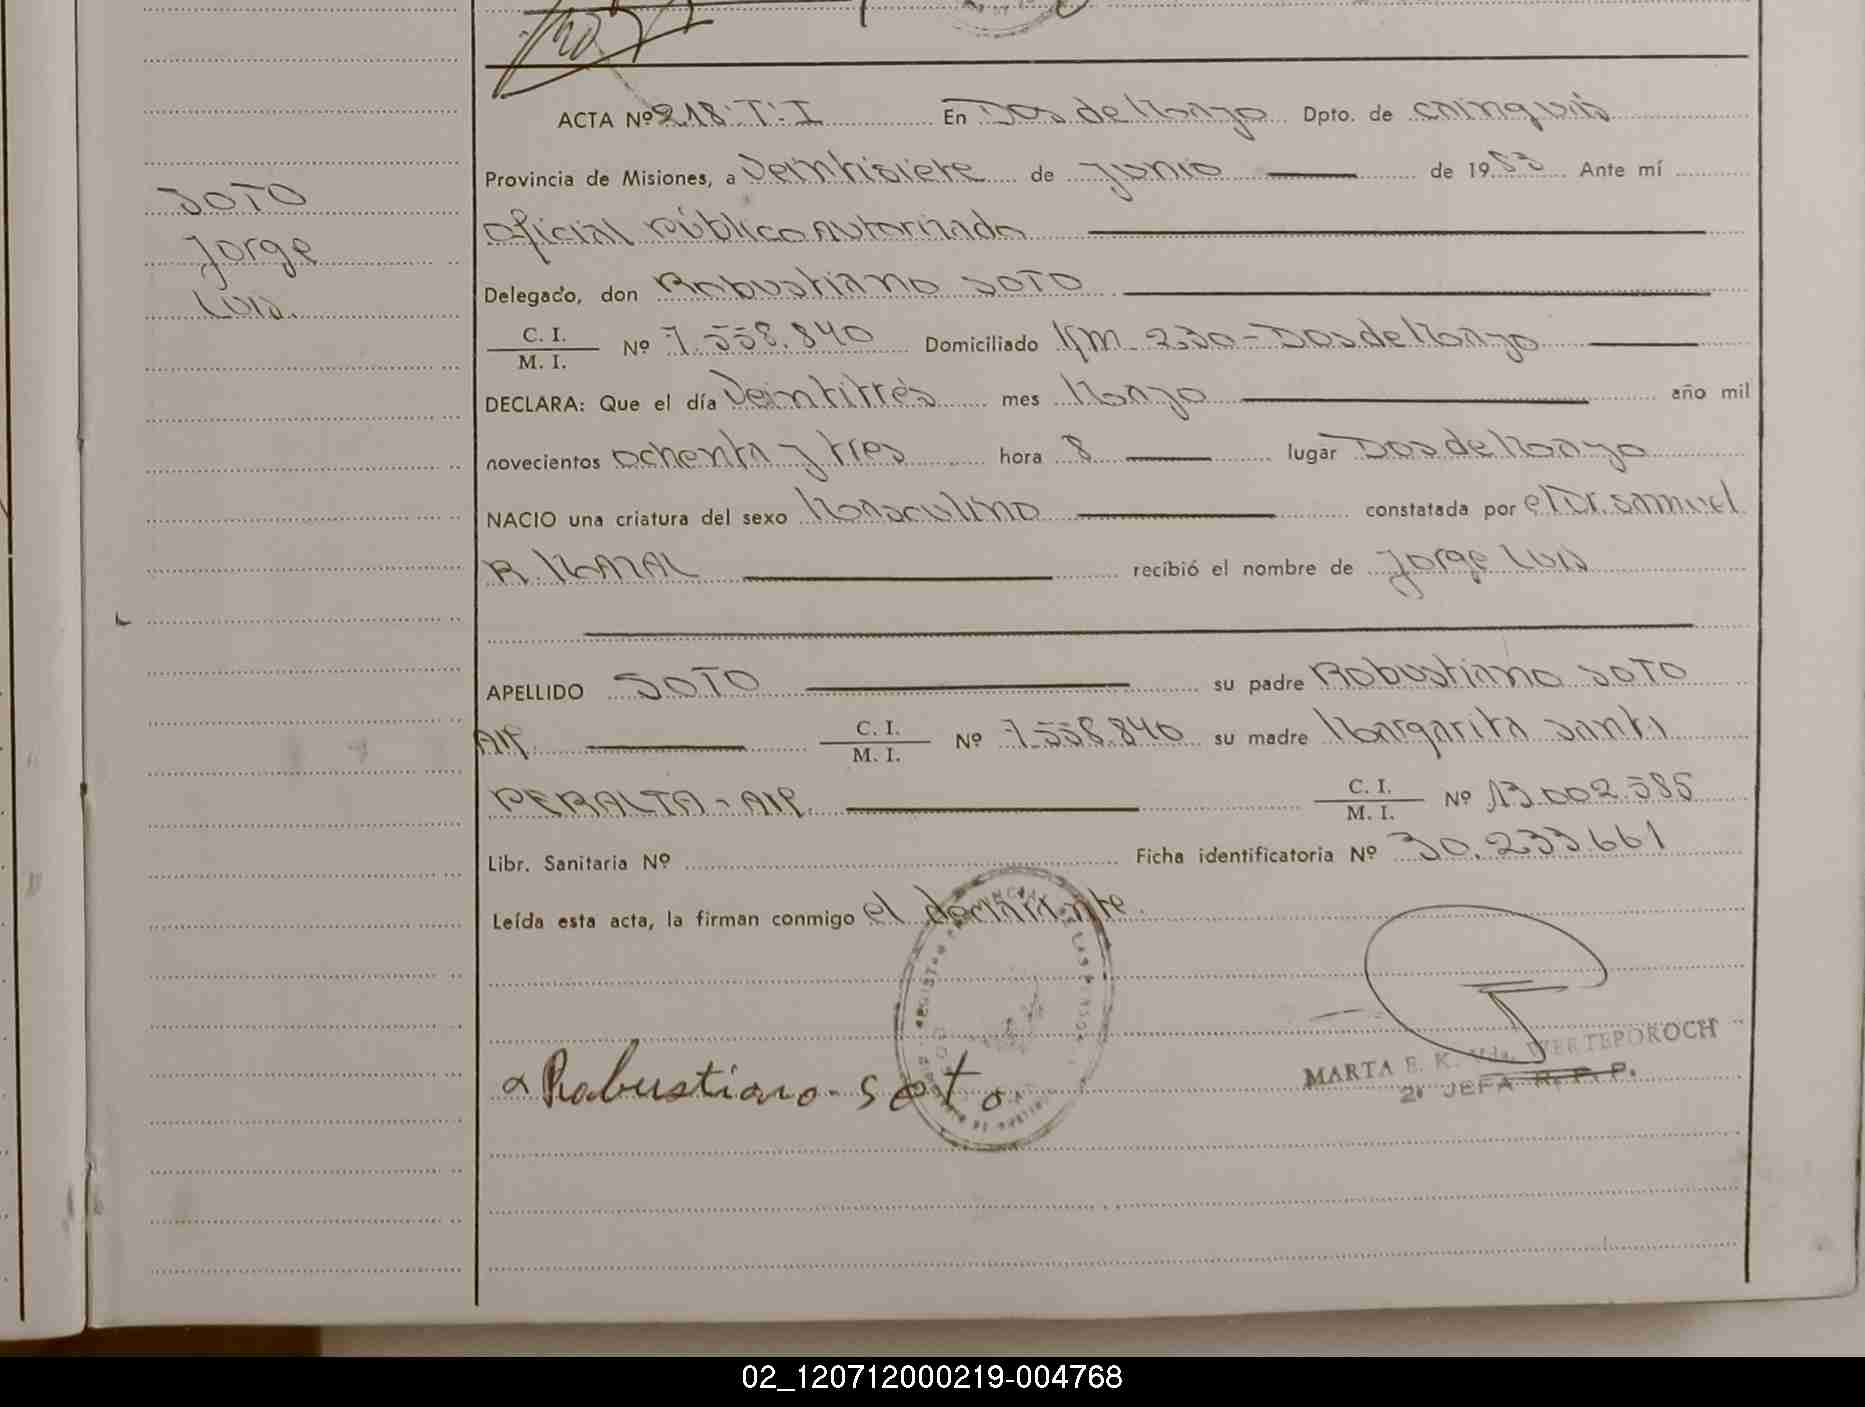 ACTA Nº 218.T.I En Dos de Mayo Dpto. de Cainguás
Provincia de Misiones, a Veintisiete de Junio de 1983 Ante mí
SOTO
oficial público autorizado
Jorge
Delegado, don Robustiano SOTO
Luis.
C. I.
M. I. Nº 7.558.840 Domiciliado KM. 230 - Dos de Mayo
DECLARA: Que el día Veintitrés mes Mayo año mil
novecientos ochenta y tres hora 8 lugar Dos de Mayo
NACIO una criatura del sexo Masculino constatada por el Dr. Samuel
R. recibió el nombre de Jorge Luis
APELLIDO SOTO su padre Robustiano SOTO
C. I.
M. I. Nº 7.558.840 su madre Margarita Santi
PERALTA -
C. I.
M. I. Nº 13.002.585
Libr. Sanitaria Nº Ficha identificatoria Nº 30.233.661
Leída esta acta, la firman conmigo el declarante.
Robustiano Soto
MARTA E. K. Vda. WERTEPOROCH
2º JEFA R. P. P.
02_120712000219-004768